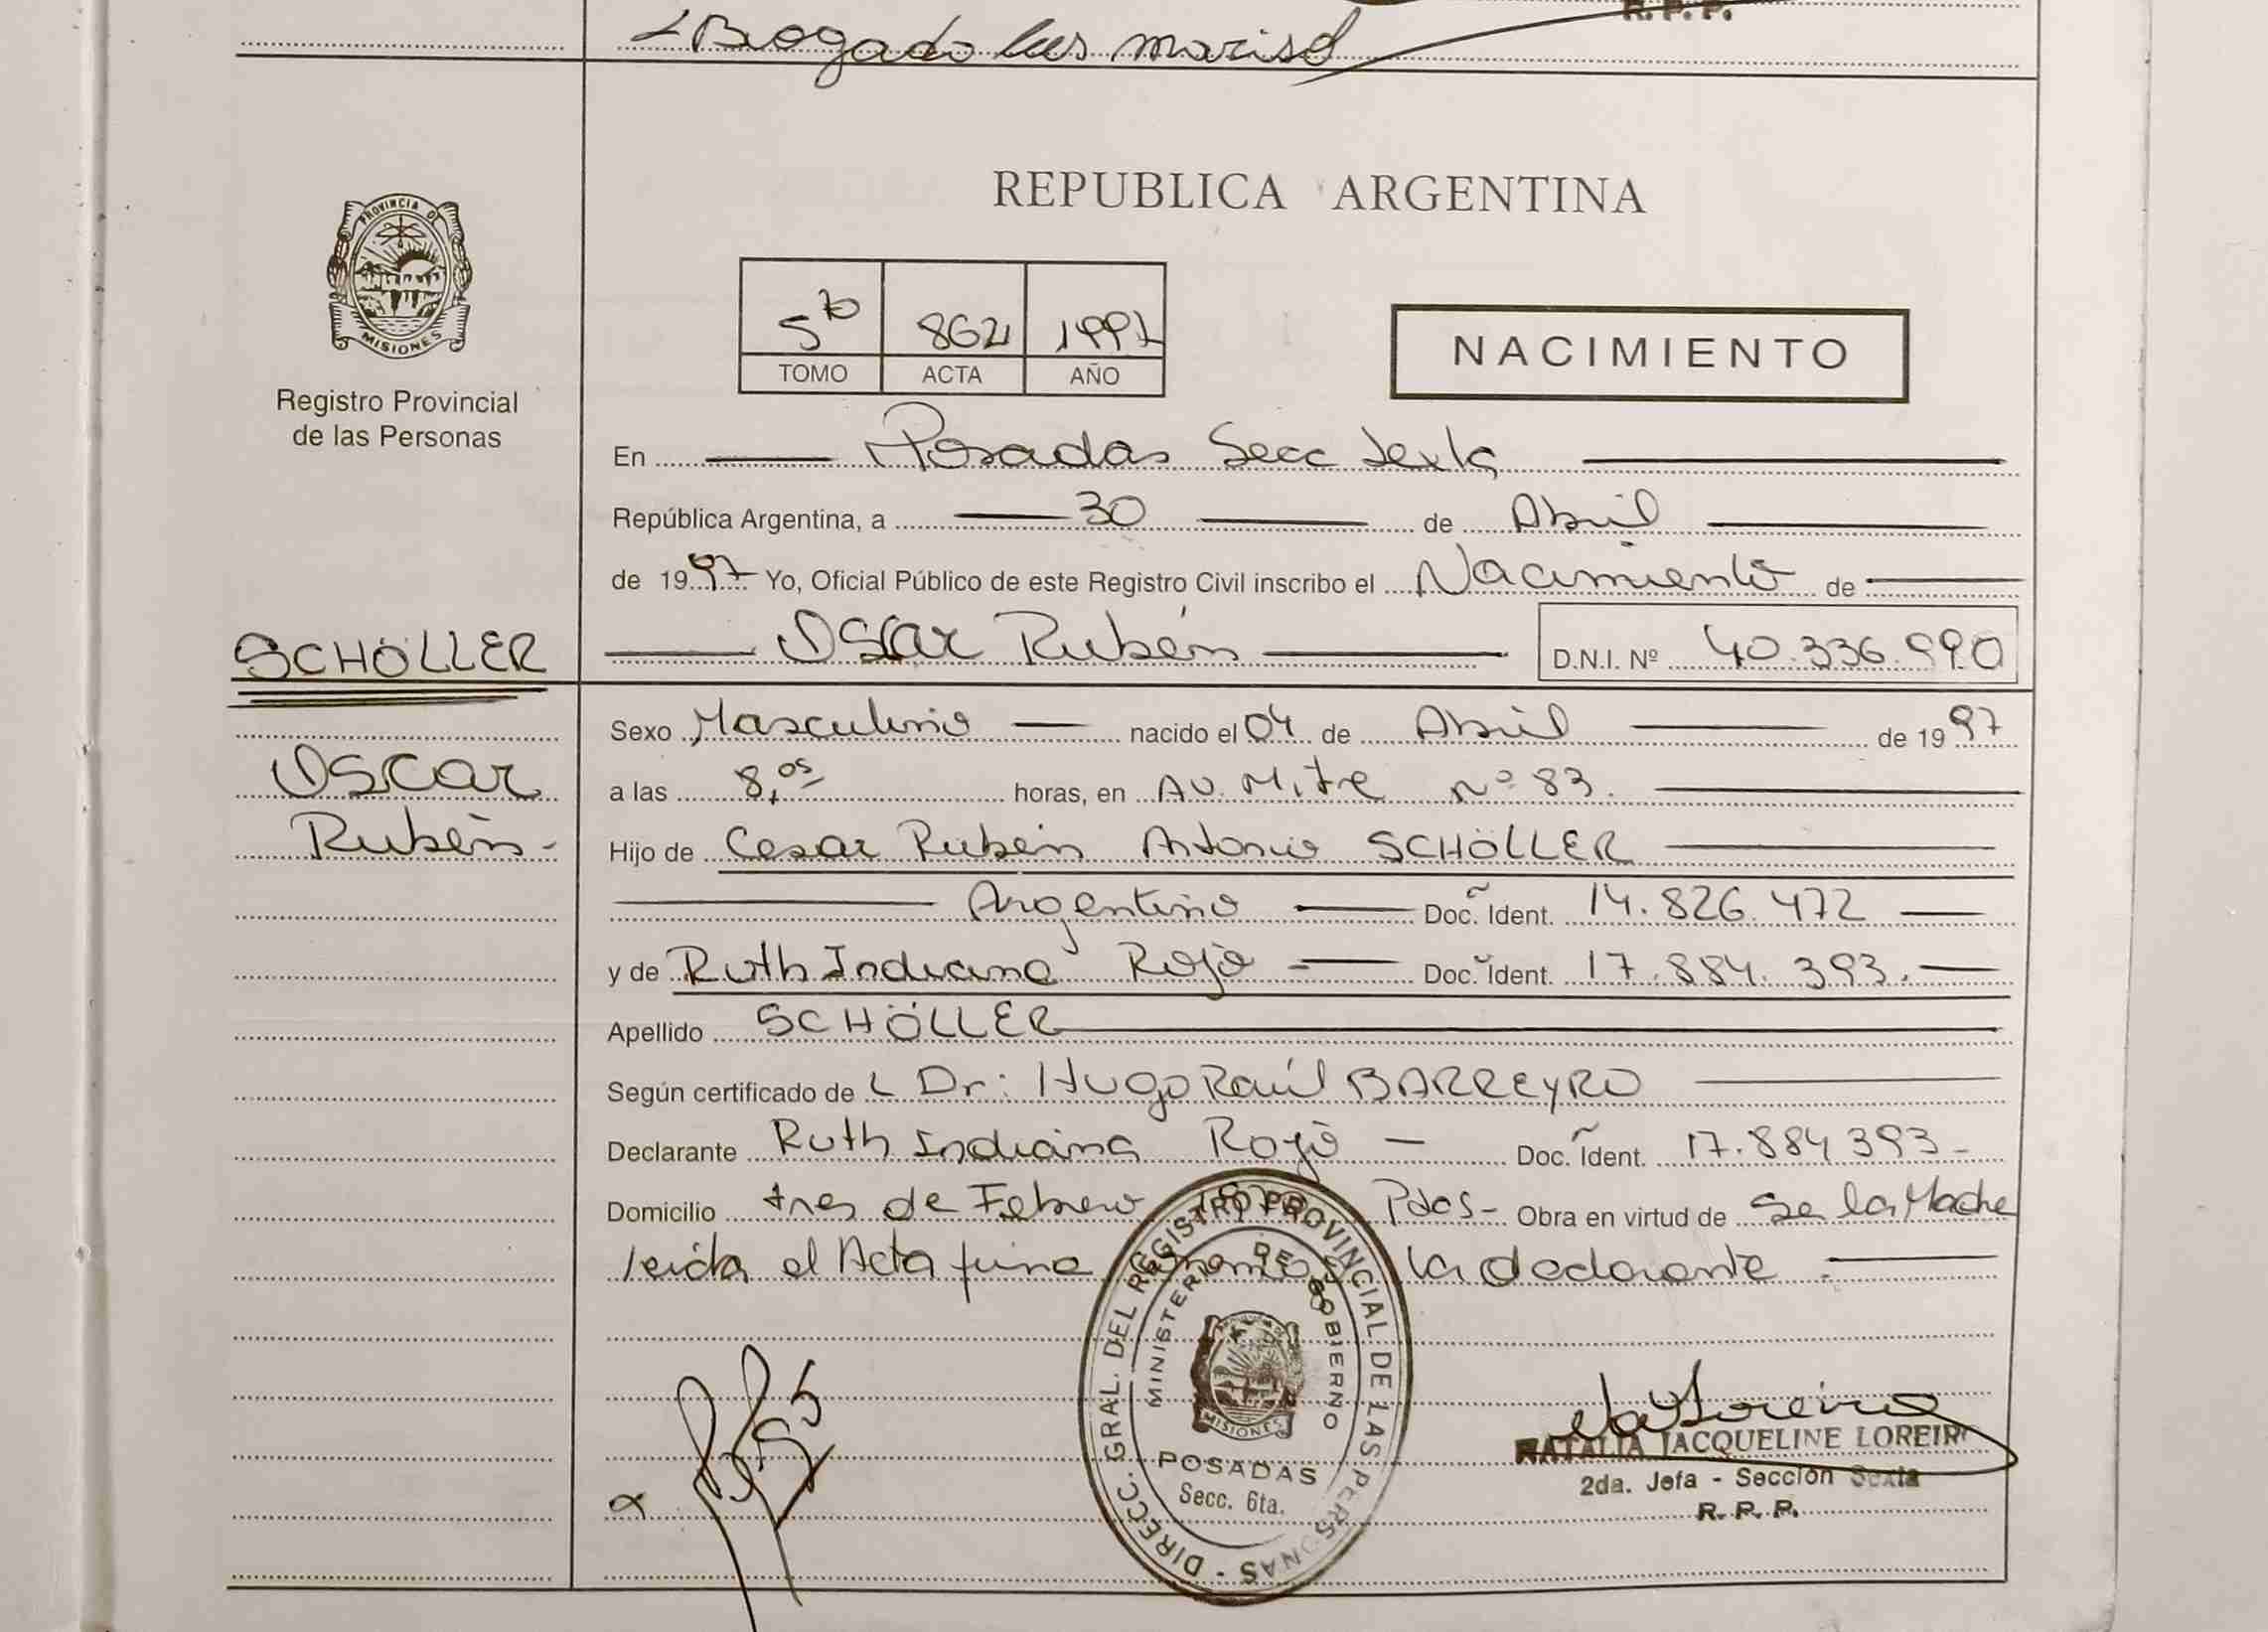 R. P. P.
Bogado Luis marisol
PROVINCIA DE
MISIONES
Registro Provincial
de las Personas
REPUBLICA ARGENTINA
5to 862 1997
TOMO ACTA AÑO
NACIMIENTO
En Posadas Secc Sexta
República Argentina, a 30 de Abril
de 1997 Yo, Oficial Público de este Registro Civil inscribo el Nacimiento de
SCHÖLLER
Oscar Rubén D.N.I. Nº 40.336.990
Sexo Masculino nacido el 04 de Abril de 1997
Oscar
a las 8,05 horas, en Av. Mitre Nº 83.
Rubén-
Hijo de Cesar Rubén Antonio SCHÖLLER
Argentino Doc. Ident. 14.826.472
y de Ruth Indiana Rojo Doc. Ident. 17.884.393.
Apellido SCHÖLLER
Según certificado de L Dr: Hugo Raúl BARREYRO
Declarante Ruth Indiana Rojo - Doc. Ident. 17.884 393-
Domicilio tres de Febrero Pdas- Obra en virtud de Ser la Madre
leida el Acta firma la declarante
DIRECC. GRAL. DEL REGISTRO PROVINCIAL DE LAS PERSONAS -
MINISTERIO DE GOBIERNO
MISIONES
POSADAS
Secc. 6ta.
NATALIA JACQUELINE LOREIRO
2da. Jefa - Sección Sexta
R. P. P.